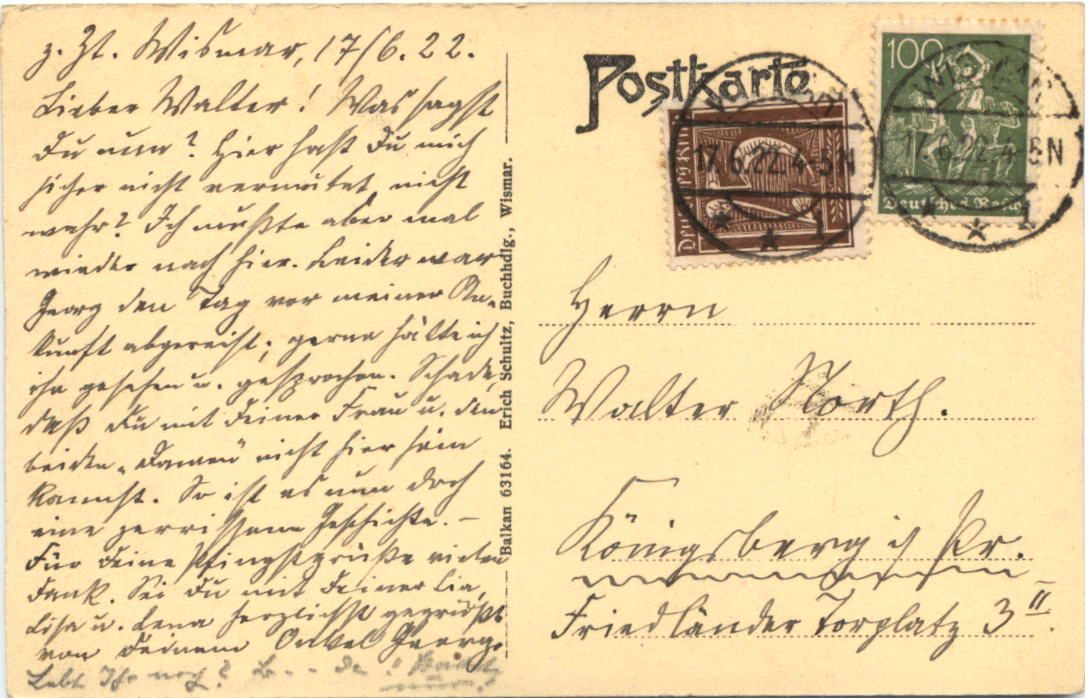 z. Zt. Wismar, 17/6. 22.
Lieber Walter! Was sagst
Du nun? Hier hast Du mich
sicher nicht vermutet, nicht
wahr? Ich mußte aber mal
wieder nach hier. Leider war
Georg den Tag vor meiner An-
kunft abgereist; gerne hätte ich
ihn gesehen u. gesprochen. Schade,
daß Du mit Deiner Frau u. den
beiden „Damen“ nicht hier sein
kannst. So ist es nun doch
eine zerrissene Geschichte. —
Für Deine Pfingstgrüße vielen
Dank. Sei Du mit Deiner Lia,
Lisa u. Lena herzlichst gegrüßt
von Deinem Onkel Georg.
Lebt Ihr noch?
Balkan 63164. Erich Schultz, Buchhdlg., Wismar.
Postkarte
17.6.22.4-5N
* * 1
100
17.6.22.4-5N
Deutsches Reich
* * 1
Herrn
Walter North.
Königsberg i/ Pr.
Friedländer Torplatz 3 II